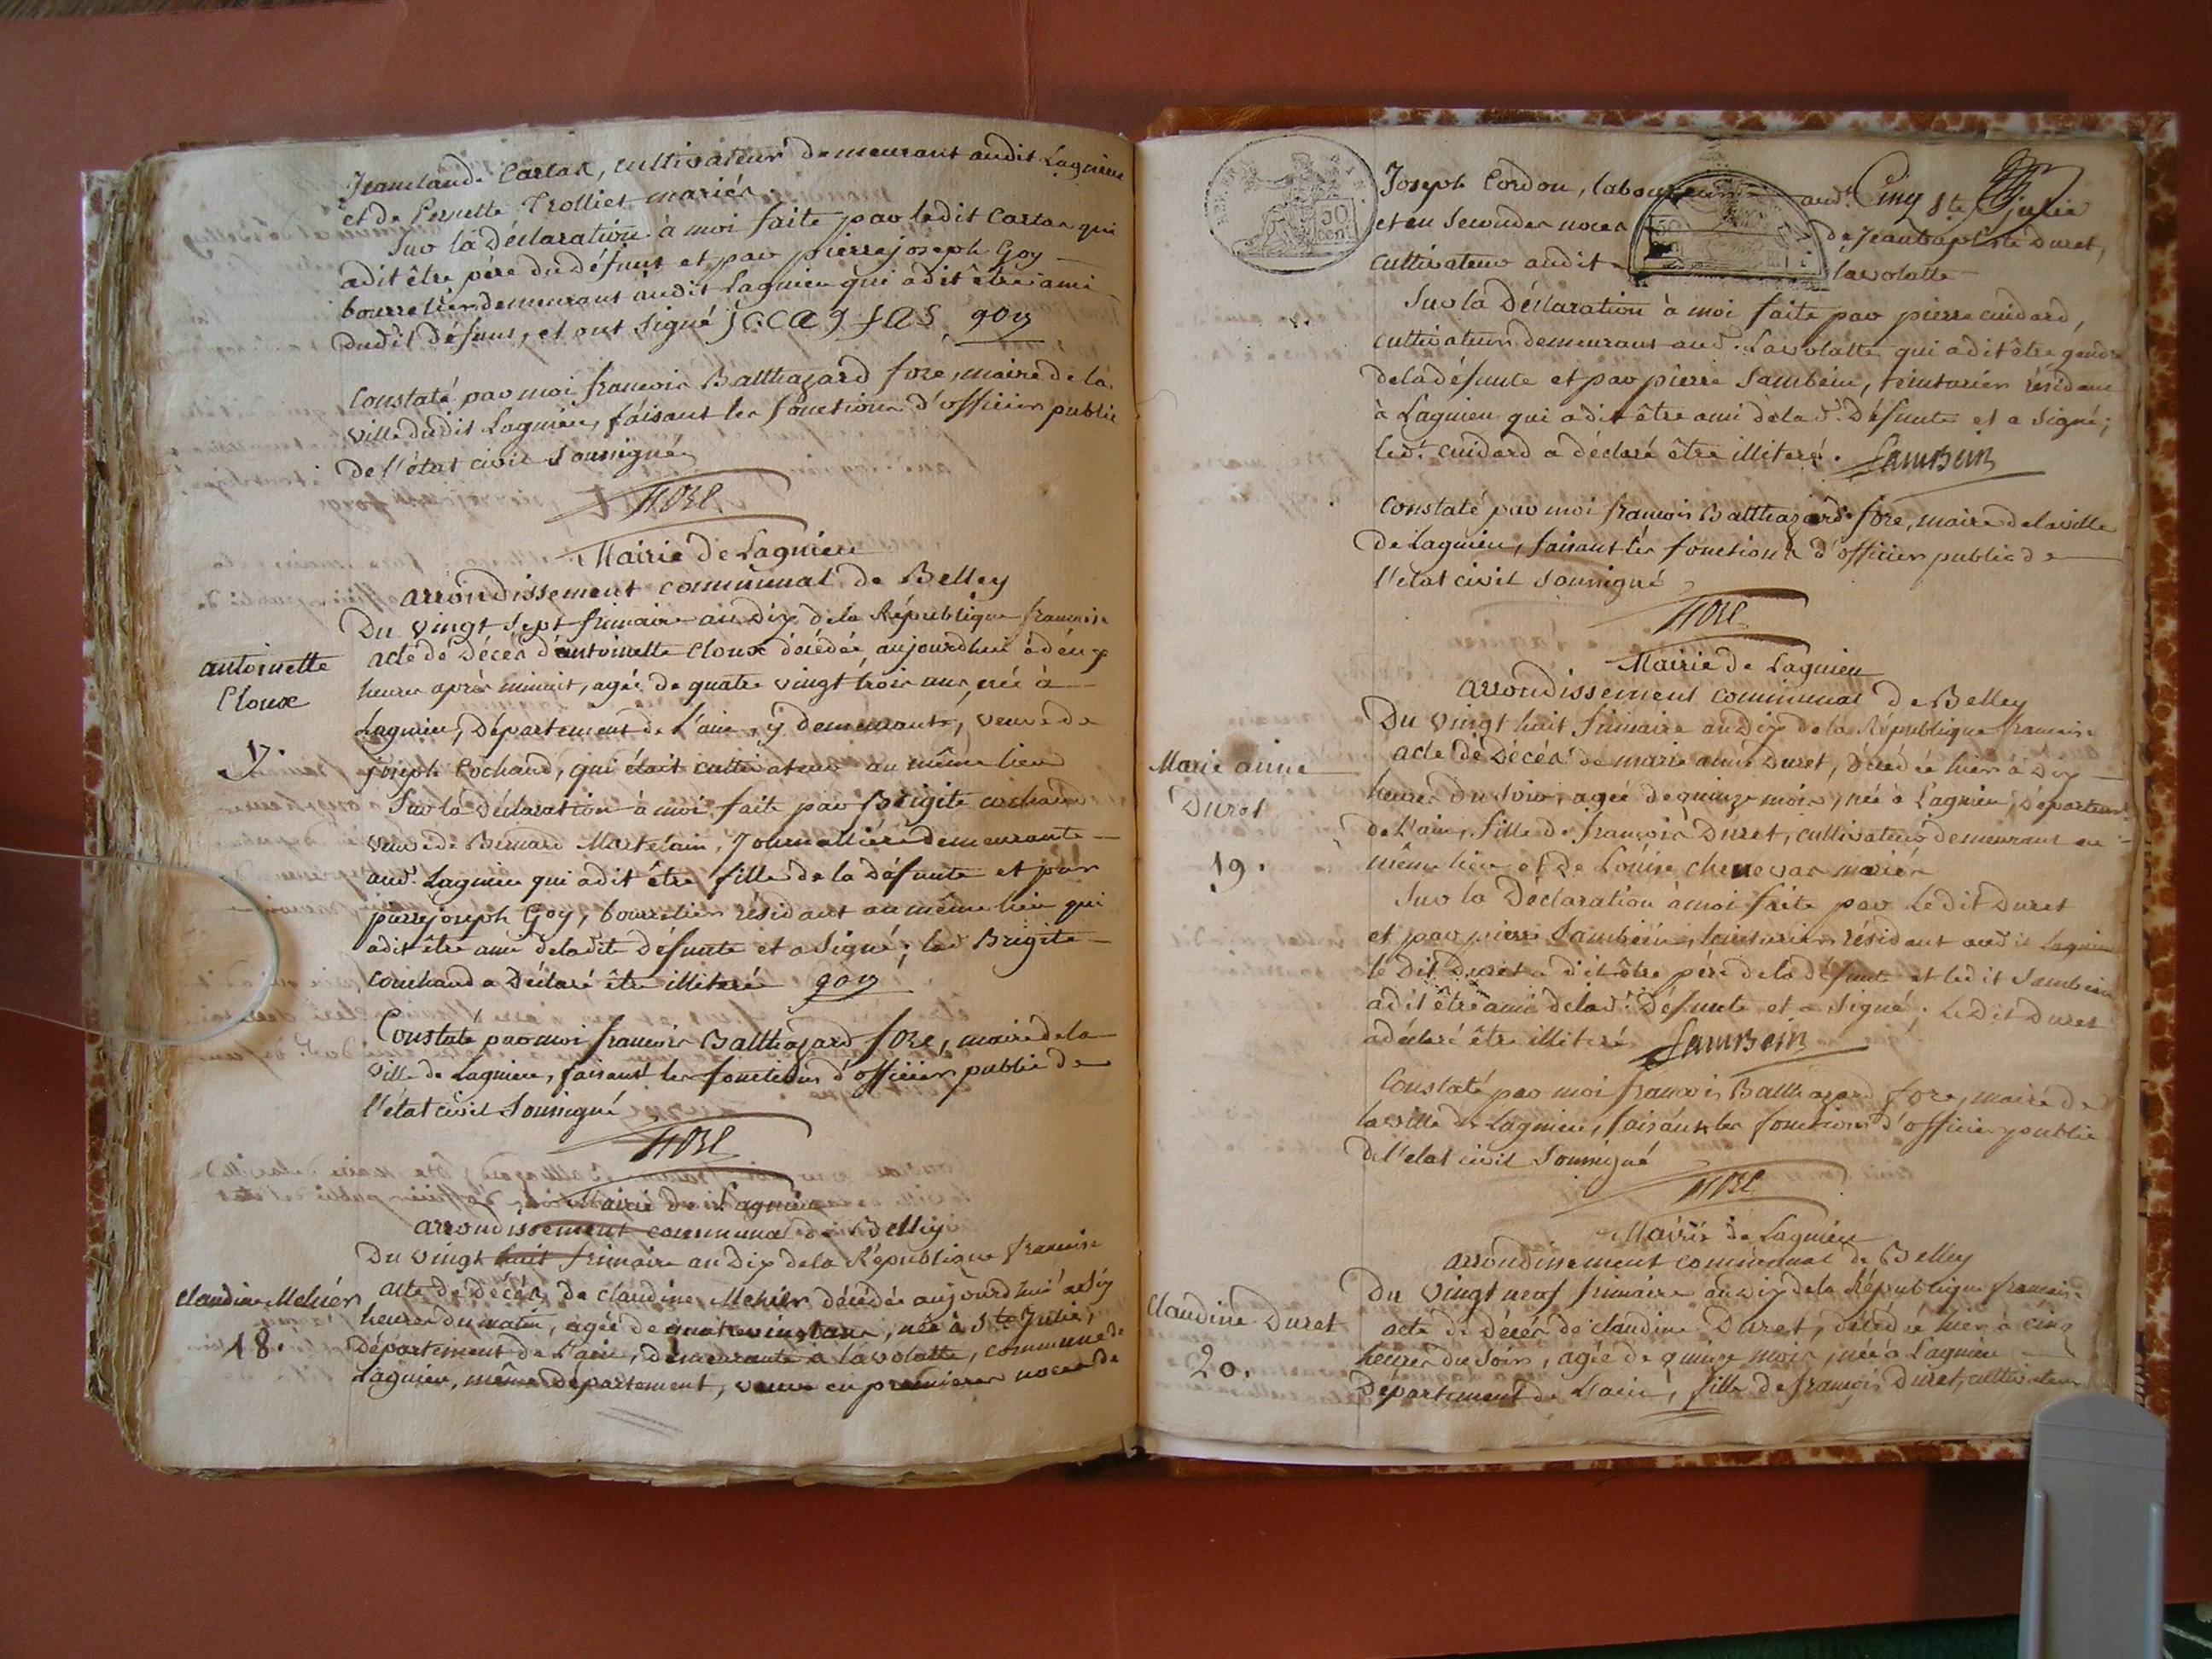 Jeanclaude Carlar, cultivateur demeurant audit Lagnieu
et de Pernette Trolliet mariés.
Sur la déclaration à moi faite par ledit Carlar qui
a dit être père du défunt et par pierrejoseph Goy
bourrelier demeurant audit Lagnieu qui a dit être ami
dudit défunt, et ont signé goy
Constaté par moi françois Balthazard fore, maire de la
ville dudit Lagnieu, faisant les fonctions d'officier public
de l'état civil soussigné
FORE
Mairie de Lagnieu
arrondissement communal de Belley
Du vingt sept frimaire an Dix de la République française
antoinette
Cloux
17.
acte de décès d'antoinette Cloux décédée aujourdhui à deux
heures après minuit, agée de quatre vingt trois ans, née à
Lagnieu, département de l'ain, y demeurante, veuve de
joseph Cochand, qui était cultivateur au même lieu
Sur la déclaration à moi faite par Brigite cochand
veuve de Bernard Martelain, Journallière demeurante
aud. Lagnieu qui a dit être fille de la défunte et par
pierrejoseph Goy, bourrelier résidant au même lieu qui
a dit être ami de ladite défunte et a signé; lad. Brigite
couchand a déclaré être illiteré goy
Constaté par moi françois Balthazard fore, maire de la
ville de Lagnieu, faisant les fonctions d'officier public de
l'état civil soussigné
FORE
Mairie de Lagnieu
arrondissement communal de Belley
Du vingt huit frimaire an Dix de la République française
claudine Mehier
18.
acte de décès de claudine Mehier décédée aujourdhui à six
heures du matin, agée de quatrevingt ans, née à Ste Julie,
département de l'ain, demeurante à lavolatte, commune de
Lagnieu, même département, veuve en premieres noces de
Joseph Cordon, laboureur aud. Ste julie
et en secondes noces de Jeanbaptiste Duret,
cultivateur audit lavolatte
50
cent
Sur la Déclaration à moi faite par pierre cuidard,
cultivateur demeurant aud. Lavolatte qui a dit être gendre
de la défunte et par pierre Sambein, teinturier résidant
à Lagnieu qui a dit être ami de la d. Défunte et a signé;
led. cuidard a déclaré être illiteré. Sambein
Constaté par moi françois Balthazard fore, maire de la ville
de Lagnieu, faisant les fonctions d'officier public de
l'état civil soussigné
FORE
Mairie de Lagnieu
arrondissement communal de Belley
Du vingt huit frimaire an Dix de la République française
Marie anne
Duret
19.
acte de décès de marie anne Duret, décédée hier à Dix
heures du soir, agée de quinze mois, née à Lagnieu, départem.
de l'ain, fille de françois Duret, cultivateur demeurant au
même lieu et de Louise chenevas mariés
Sur la Déclaration à moi faite par ledit Duret
et par pierre Sambein, teinturier résidant audit Lagnieu
le dit Duret a dit être père de la défunte et ledit Sambein
a dit être ami de lad. Défunte et a signé. Ledit Duret
a déclaré être illiteré Sambein
Constaté par moi françois Balthazard fore, maire de
la ville de Lagnieu, faisant les fonctions d'officier public
de l'état civil soussigné
FORE
Mairie de Lagnieu
arrondissement communal de Belley
Du vingt neuf frimaire an dix de la République française
Claudine Duret
20.
acte de décès de claudine Duret, décédée hier à cinq
heures du soir, agée de quinze mois, née à Lagnieu
département de l'ain, fille de françois Duret, cultivateur